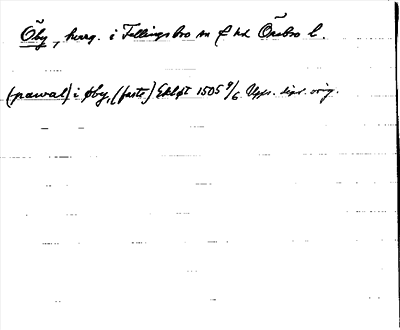 Öby, herrg. i Fellingsbro sn f hd Örebro l.
(pawal) i øby, (faste) Ekløst 1505 9/6 Upps. dipl. orig.